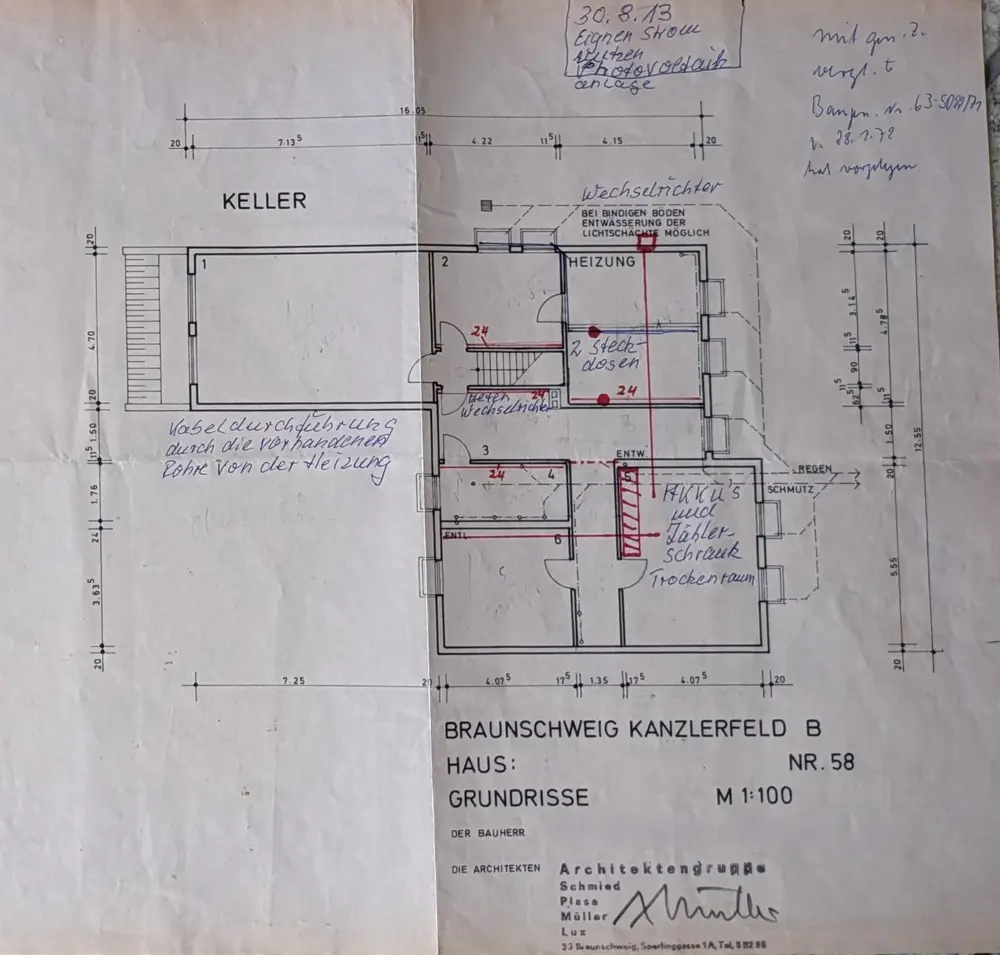 30.8.13
Eignen Strom
nutzen
Photovoltaik
anlage
mit gen. Z.
vergl. t
v. 28.1.72
hat vorgelegen
16.05
20
7.13⁵
11⁵
4.22
11⁵
4.15
20
KELLER
Wechselrichter
BEI BINDIGEN BÖDEN
ENTWÄSSERUNG DER
LICHTSCHÄCHTE MÖGLICH
1
2
HEIZUNG
24
2 Steck-
dosen
24
24
Wechselrichter
Kabeldurchführung
durch die vorhandenen
Rohre von der Heizung
3
24
4
ENTW.
5
REGEN
SCHMUTZ
und
Zähler-
schrank
Trockenraum
ENTL.
6
20
4.70
20
1.50
11⁵
1.76
24
3.63⁵
20
20
20
3.14⁵
4.78⁵
11⁵
90
11⁵
62⁵
20
1.50
20
12.55
5.55
20
7.25
20
4.07⁵
17⁵
1.35
17⁵
4.07⁵
20
BRAUNSCHWEIG KANZLERFELD B
HAUS: NR. 58
GRUNDRISSE M 1:100
DER BAUHERR
DIE ARCHITEKTEN
Architektengruppe
Schmied
Plasa
Müller
Lux
33 Braunschweig, Sperlinggasse 1A, Tel.